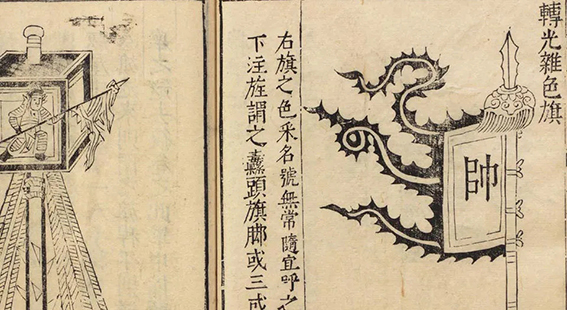 轉光雜色旗
帥
右旗之色采名號無常隨宜呼之
下注旌謂之纛頭旗脚或三